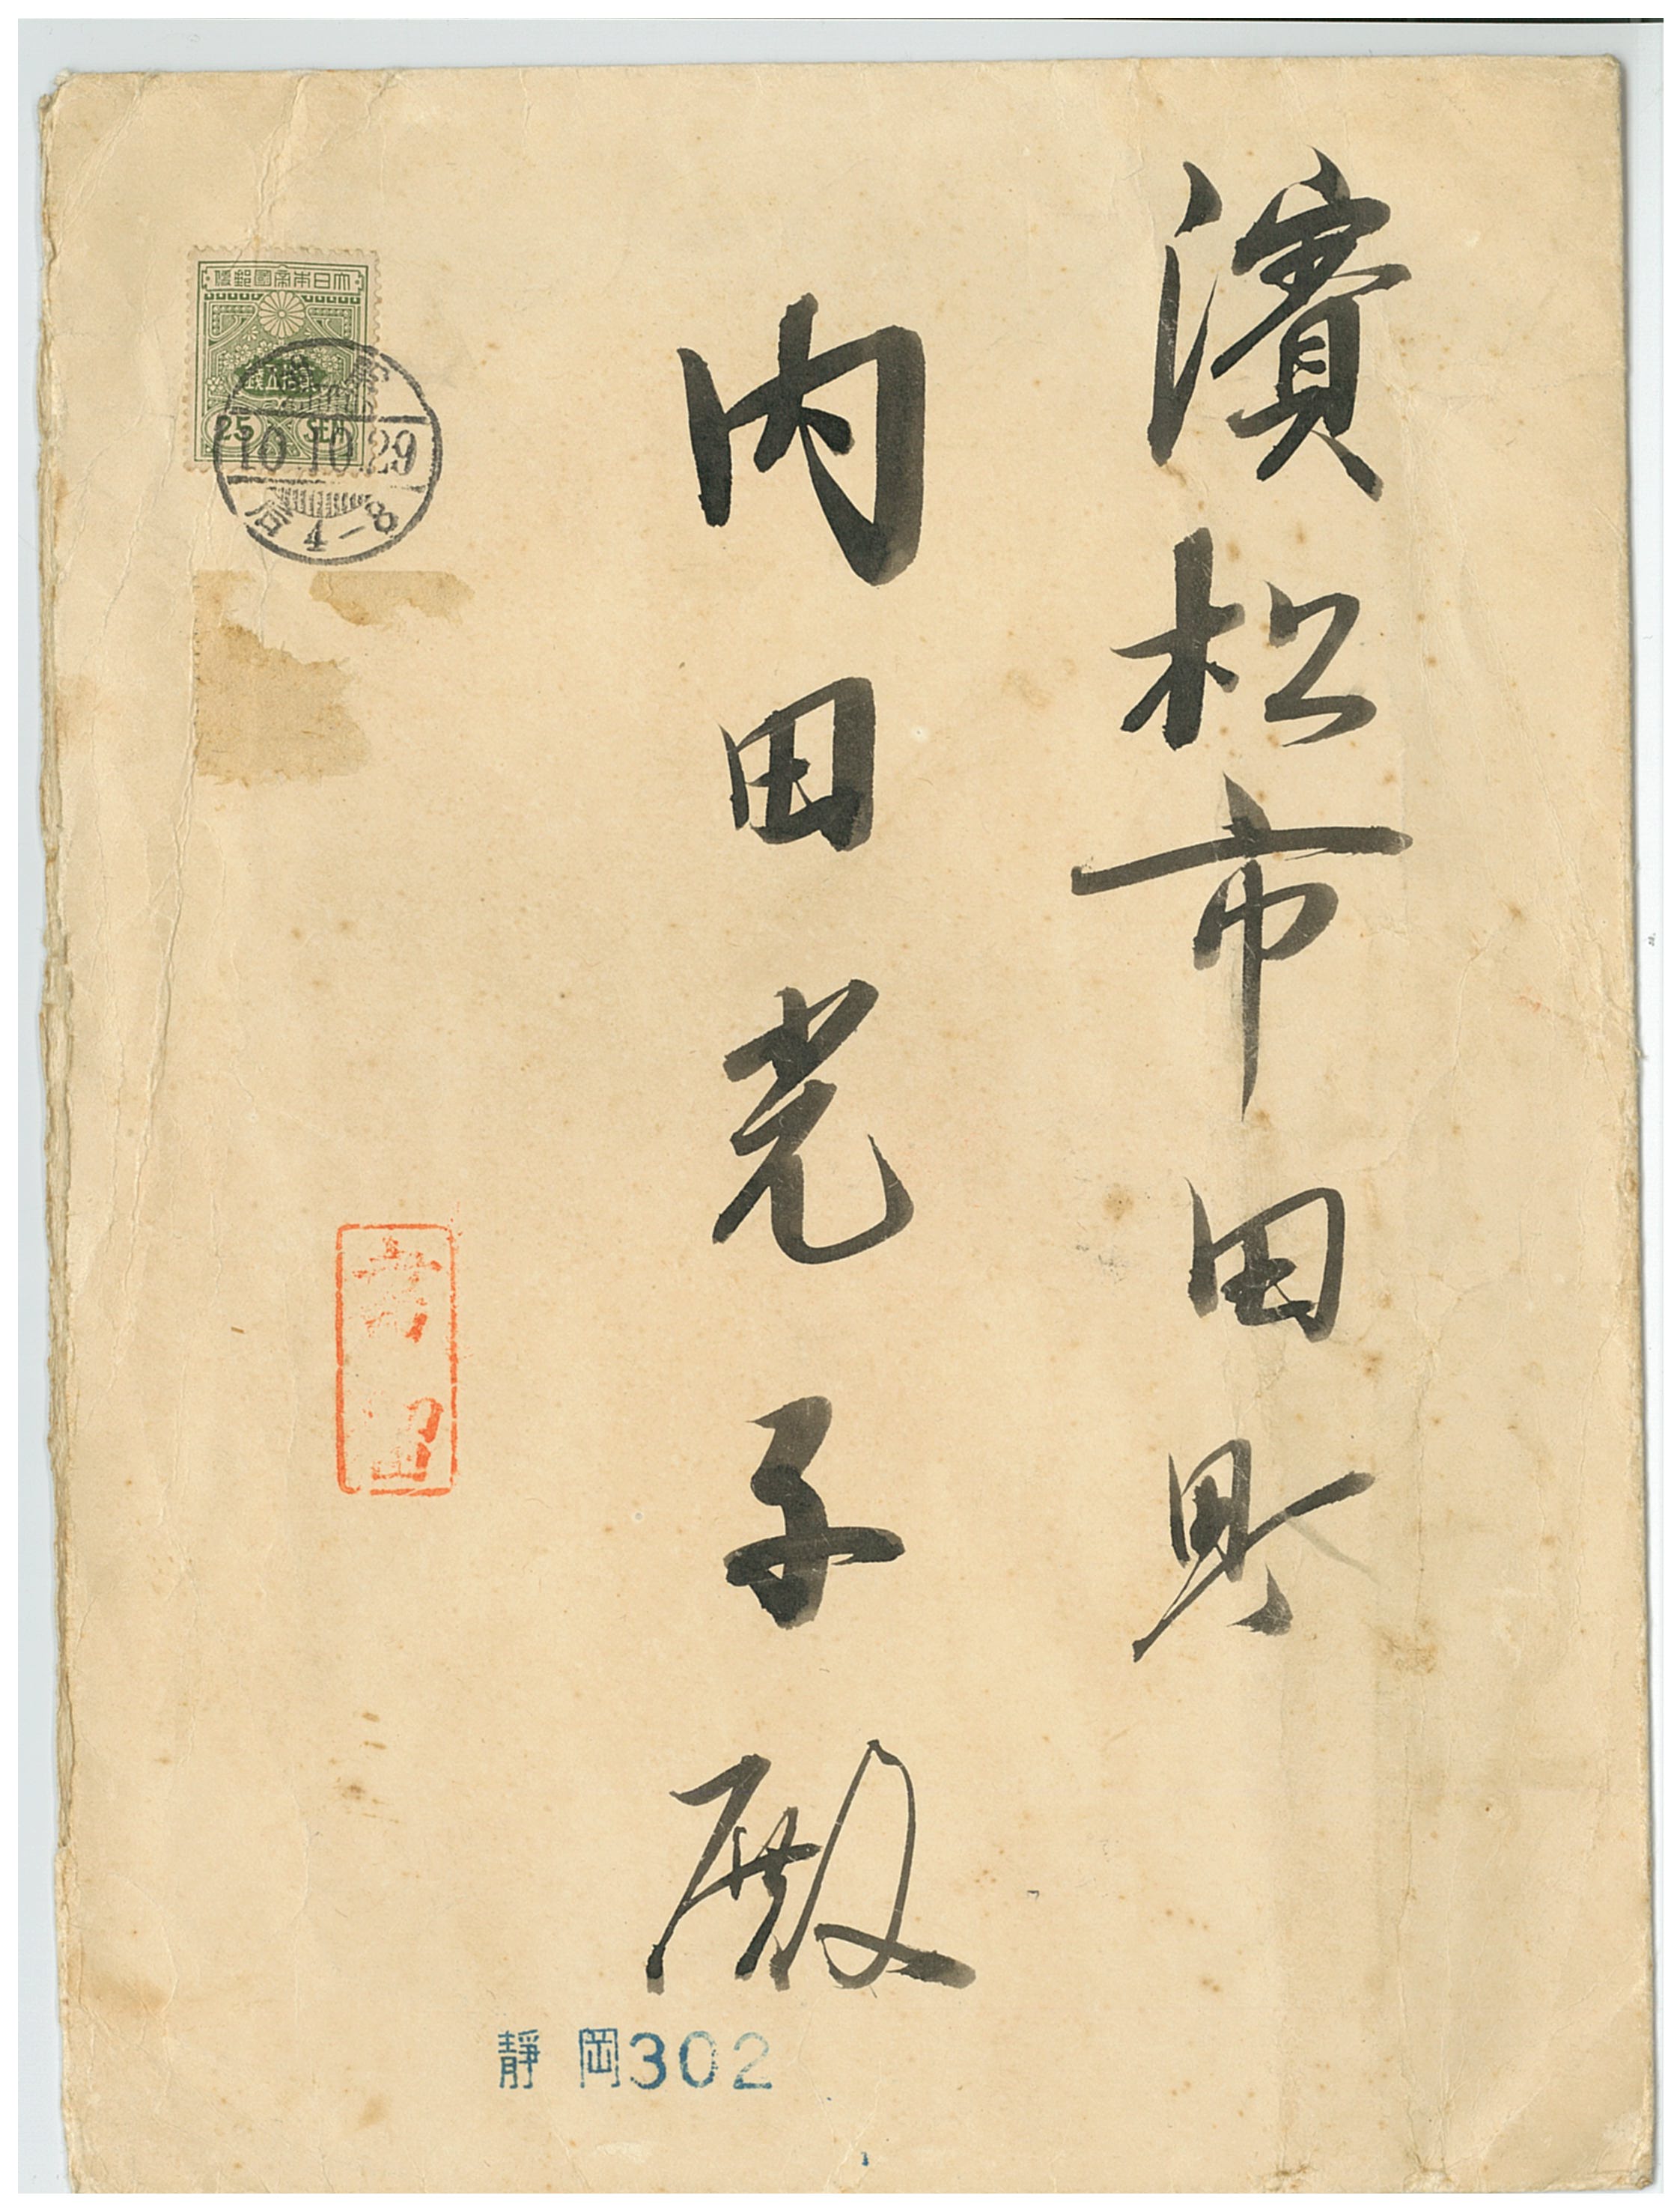 濱松市田町
内田光子殿
大日本帝國郵便
25 SEN
10.10.29
4-8
書留
靜岡302